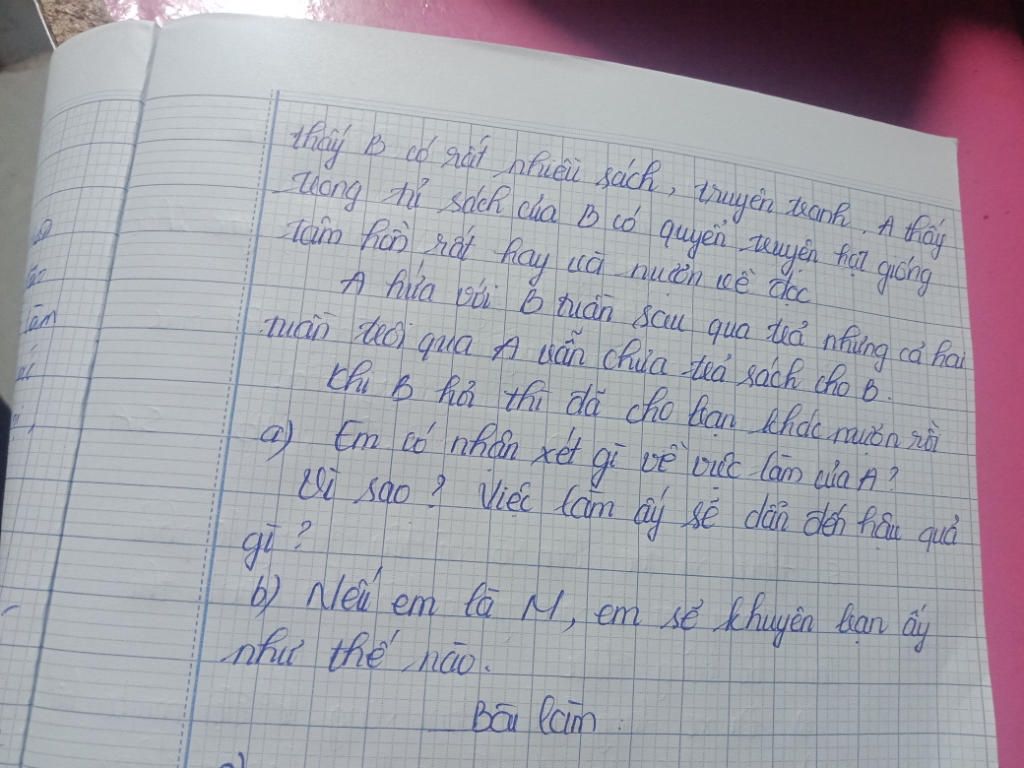 thấy B có rất nhiều sách, truyện tranh. A thấy
trong tủ sách của B có quyển truyện hạt giống
tâm hồn rất hay và mượn về đọc
A hứa với B tuần sau qua trả nhưng cả hai
tuần trôi qua A vẫn chưa trả sách cho B.
Khi B hỏi thì đã cho bạn khác mượn rồi
a) Em có nhận xét gì về việc làm của A?
Vì sao? Việc làm ấy sẽ dẫn đến hậu quả
gì?
b) Nếu em là M, em sẽ khuyên bạn ấy
như thế nào.
Bài làm